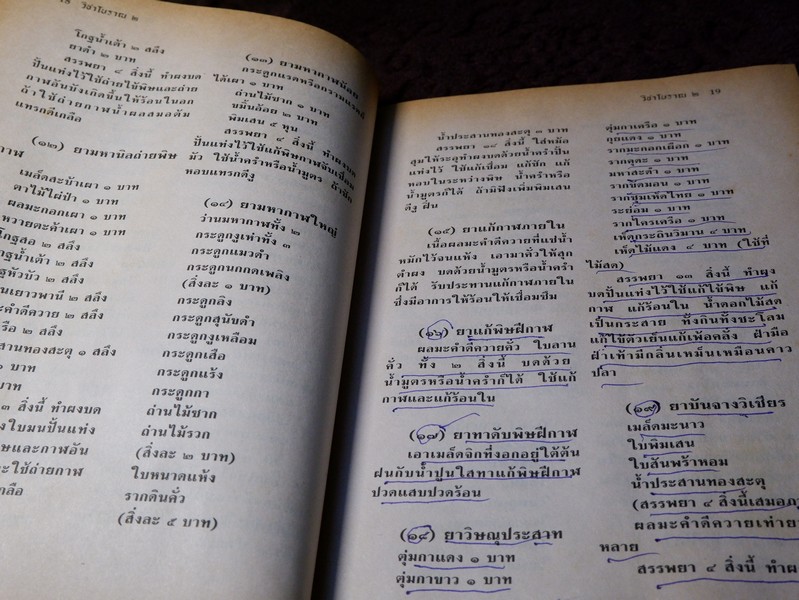 วิชาโบราณ ๒
โกฐน้ำเต้า ๒ สลึง
ยาดำ ๒ บาท
สรรพยา ๔ สิ่งนี้ ทำผงบด
ปั้นแท่งไว้ใช้ถ่ายใช้พิษและถ่าย
กาฬอันบังเกิดขึ้นให้ร้อนในอก
ถ้าใช้ถ่ายกาฬน้ำผลสมอต้ม
แทรกดีเกลือ
(๑๒) ยามหานิลถ่ายพิษ
กาฬ
เมล็ดสะบ้าเผา ๑ บาท
ตาไม้ไผ่ป่า ๑ บาท
ผลมะกอกเผา ๑ บาท
หวายตะค้าเผา ๑ บาท
โกฐสอ ๒ สลึง
๒ สลึง
๒ สลึง
๒ สลึง
๒ สลึง
๒ สลึง
ประสานทองสะตุ ๑ สลึง
๑ บาท
บาท
๓ สิ่งนี้ ทำผงบด
ใบมนปั้นแท่ง
และกาฬอัน
ใช้ถ่ายกาฬ
(๑๓) ยามหากาฬน้อย
ได้เผา ๑ บาท
ถ่านไม้ซาก ๑ บาท
ขมิ้นอ้อย ๒ บาท
พิมเสน ๕ หุน
สรรพยา ๕ สิ่งนี้
ปั้นแท่งไว้ใช้แก้พิษกาฬอันเชื่อม
มัว ใช้น้ำครำหรือน้ำมูตร
หอบแทรกดีงู
(๑๔) ยามหากาฬใหญ่
ว่านมหากาฬทั้ง ๒
กระดูกงูเห่าทั้ง ๓
กระดูกแมวดำ
กระดูกนกกดเพลิง
(สิ่งละ ๑ บาท)
กระดูกลิง
กระดูกสุนัขดำ
กระดูกงูเหลือม
กระดูกเสือ
กระดูกแร้ง
กระดูกกา
ถ่านไม้ซาก
ถ่านไม้รวก
(สิ่งละ ๒ บาท)
ใบหนาดแห้ง
รากดินคั่ว
(สิ่งละ ๕ บาท)
วิชาโบราณ ๒ 19
น้ำประสานทองสะตุ ๓ บาท
สรรพยา ๑๘ สิ่งนี้ ใส่หม้อ
สุมให้ระอุทำผงบดด้วยน้ำคร่ำปั้น
แท่งไว้ ใช้แก้เชื่อม แก้ซึก แก้
หอบในระหว่างพิษ น้ำครำหรือ
น้ำมูตรก็ได้ ถ้ามิฟังเพิ่มพิมเสน
ดีงู ฝิ่น
(๑๕) ยาแก้กาฬภายใน
เนื้อผลมะคำดีควายที่แปน้ำ
หมักไว้จนแห้ง เอามาคั่วให้สุก
ตำผง บดด้วยน้ำมูตรหรือน้ำครำ
ก็ได้ รับประทานแก้กาฬภายใน
ซึ่งมีอาการให้ร้อนให้เชื่อมซึม
(๑๖) ยาแก้พิษฝีกาฬ
ผลมะคำดีควายคั่ว ใบลาน
คั่ว ทั้ง ๒ สิ่งนี้ บดด้วย
น้ำมูตรหรือน้ำครำก็ได้ ใช้แก้
กาฬและแก้ร้อนใน
(๑๗) ยาทาดับพิษฝีกาฬ
เอาเมล็ดจิกที่งอกอยู่ใต้ต้น
ฝนกับน้ำปูนใสทาแก้พิษฝีกาฬ
ปวดแสบปวดร้อน
(๑๘) ยาวิษณุประสาท
ตุ่มกาแดง ๑ บาท
ตุ่มกาขาว ๑ บาท
ตุ่มกาเครือ ๑ บาท
กุยแดง ๑ บาท
รากมะกอกเผือก ๑ บาท
รากคูตะ ๑ บาท
มหาสะดำ ๑ บาท
รากขัดมอน ๑ บาท
รากชุมเห็ดไทย ๑ บาท
ระย่อม ๑ บาท
รากไครเครือ ๑ บาท
เห็ดกระถินวิมาน ๔ บาท
เห็ดไม้แดง ๔ บาท (ใช้ที่
ไม้สด)
สรรพยา ๑๓ สิ่งนี้ ทำผง
บดปั้นแท่งไว้ใช้แก้ใช้พิษ แก้
กาฬ แก้ร้อนใน น้ำดอกไม้สด
เป็นกระสาย ทั้งกินทั้งชะโลม
แก้ใช้ตัวเย็นแก้เพ้อคลั่ง ฝ่ามือ
ฝ่าเท้ามีกลิ่นเหม็นเหมือนคาว
ปลา
(๑๙) ยาบันจางวิเชียร
เมล็ดมะนาว
ใบพิมเสน
ใบสันพร้าหอม
น้ำประสานทองสะตุ
(สรรพยา ๔ สิ่งนี้เสมอภ
ผลมะคำดีควายเท่ายา
หลาย
สรรพยา ๕ สิ่งนี้ ทำผ